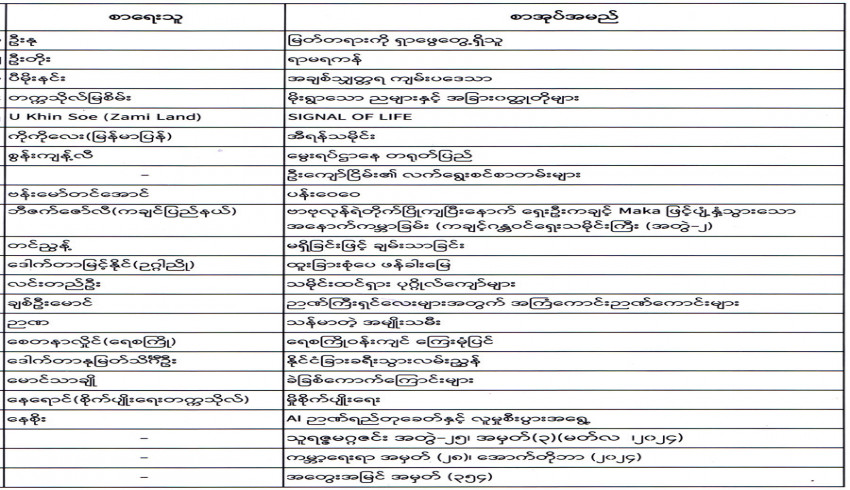 စာရေးသူ စာအုပ်အမည်
ဦးနု မြတ်တရားကို ရှာဖွေတွေ့ရှိသူ
ဦးတိုး ရာမရကန်
ပီမိုးနင်း အချစ်သျှတ္တရ ကျမ်းပဒေသာ
တက္ကသိုလ်မြစိမ်း မိုးရွာသော ညများနှင့် အခြားဝတ္ထုတိုများ
U Khin Soe (Zami Land) SIGNAL OF LIFE
ကိုကိုလေး(မြန်မာပြန်) အီရန်သမိုင်း
စွန်းကျန့်လီ မွေးရပ်ဌာနေ တရုတ်ပြည်
– ဦးကျော်ငြိမ်း၏ လက်ရွေးစင်စာတမ်းများ
ဗန်းမော်တင်အောင် ပန်းဝေဝေ
ဘီဇက်ဇော်လီ(ကချင်ပြည်နယ်) ဗာဗုလုန်ရဲတိုက်ပြိုကျပြီးနောက် ရှေးဦးကချင့် Maka ဖြင့်ပျံ့နှံ့သွားသော
အနောက်ကမ္ဘာခြမ်း (ကချင့်ဂန္ထဝင်ရှေးသမိုင်းကြီး (အတွဲ-၂)
တင်ညွန့် မရှိခြင်းဖြင့် ချမ်းသာခြင်း
ဒေါက်တာမြင့်နိုင်(ဥဂ္ဂါညို) ထူးခြားစုံပေ ဖန်ခါးမြေ
လင်းတည်ဦး သမိုင်းထင်ရှား ပုဂ္ဂိုလ်ကျော်များ
ချစ်ဦးမောင် ဉာဏ်ကြီးရှင်လေးများအတွက် အကြံကောင်းဉာဏ်ကောင်းများ
ဉာဏ သန်မာတဲ့ အမျိုးသမီး
စေတနာလှိုင်(ရေစကြို) ရေစကြိုဝန်းကျင် ကြေးမုံပြင်
ဒေါက်တာနုမြတ်သိင်္ဂီဦး နိုင်ငံခြားခရီးသွားလမ်းညွှန်
မောင်သာချို ခဲခြစ်ကောက်ကြောင်းများ
နေရောင်(စိုက်ပျိုးရေးတက္ကသိုလ်) မှိုစိုက်ပျိုးရေး
နေစိုး AI ဉာဏ်ရည်တုခေတ်နှင့် လူမှုစီးပွားအရွေ့
– သူရဇ္ဇမဂ္ဂဇင်း အတွဲ-၂၅၊ အမှတ်(၃)(မတ်လ ၊၂၀၂၄)
– ကမ္ဘာ့ရေးရာ အမှတ် (၂၈)၊ အောက်တိုဘာ (၂၀၂၄)
– အတွေးအမြင် အမှတ် (၃၅၄)